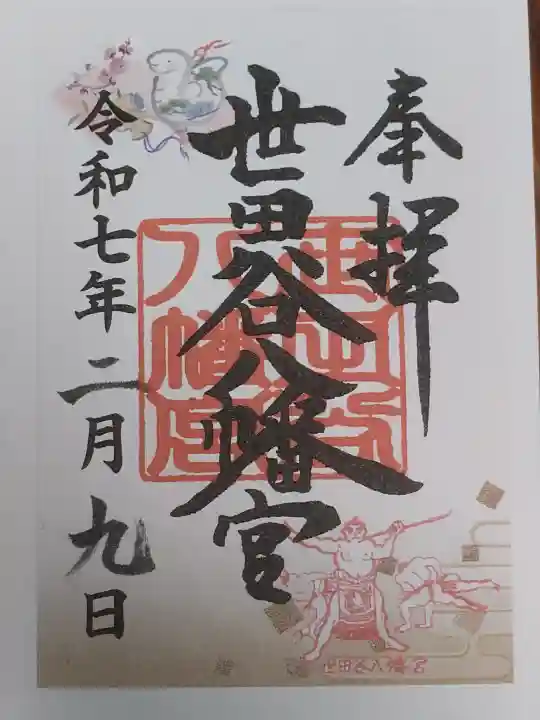 奉拝
世田谷八幡宮
令和七年二月九日
世田谷
八幡宮
世田谷八幡宮